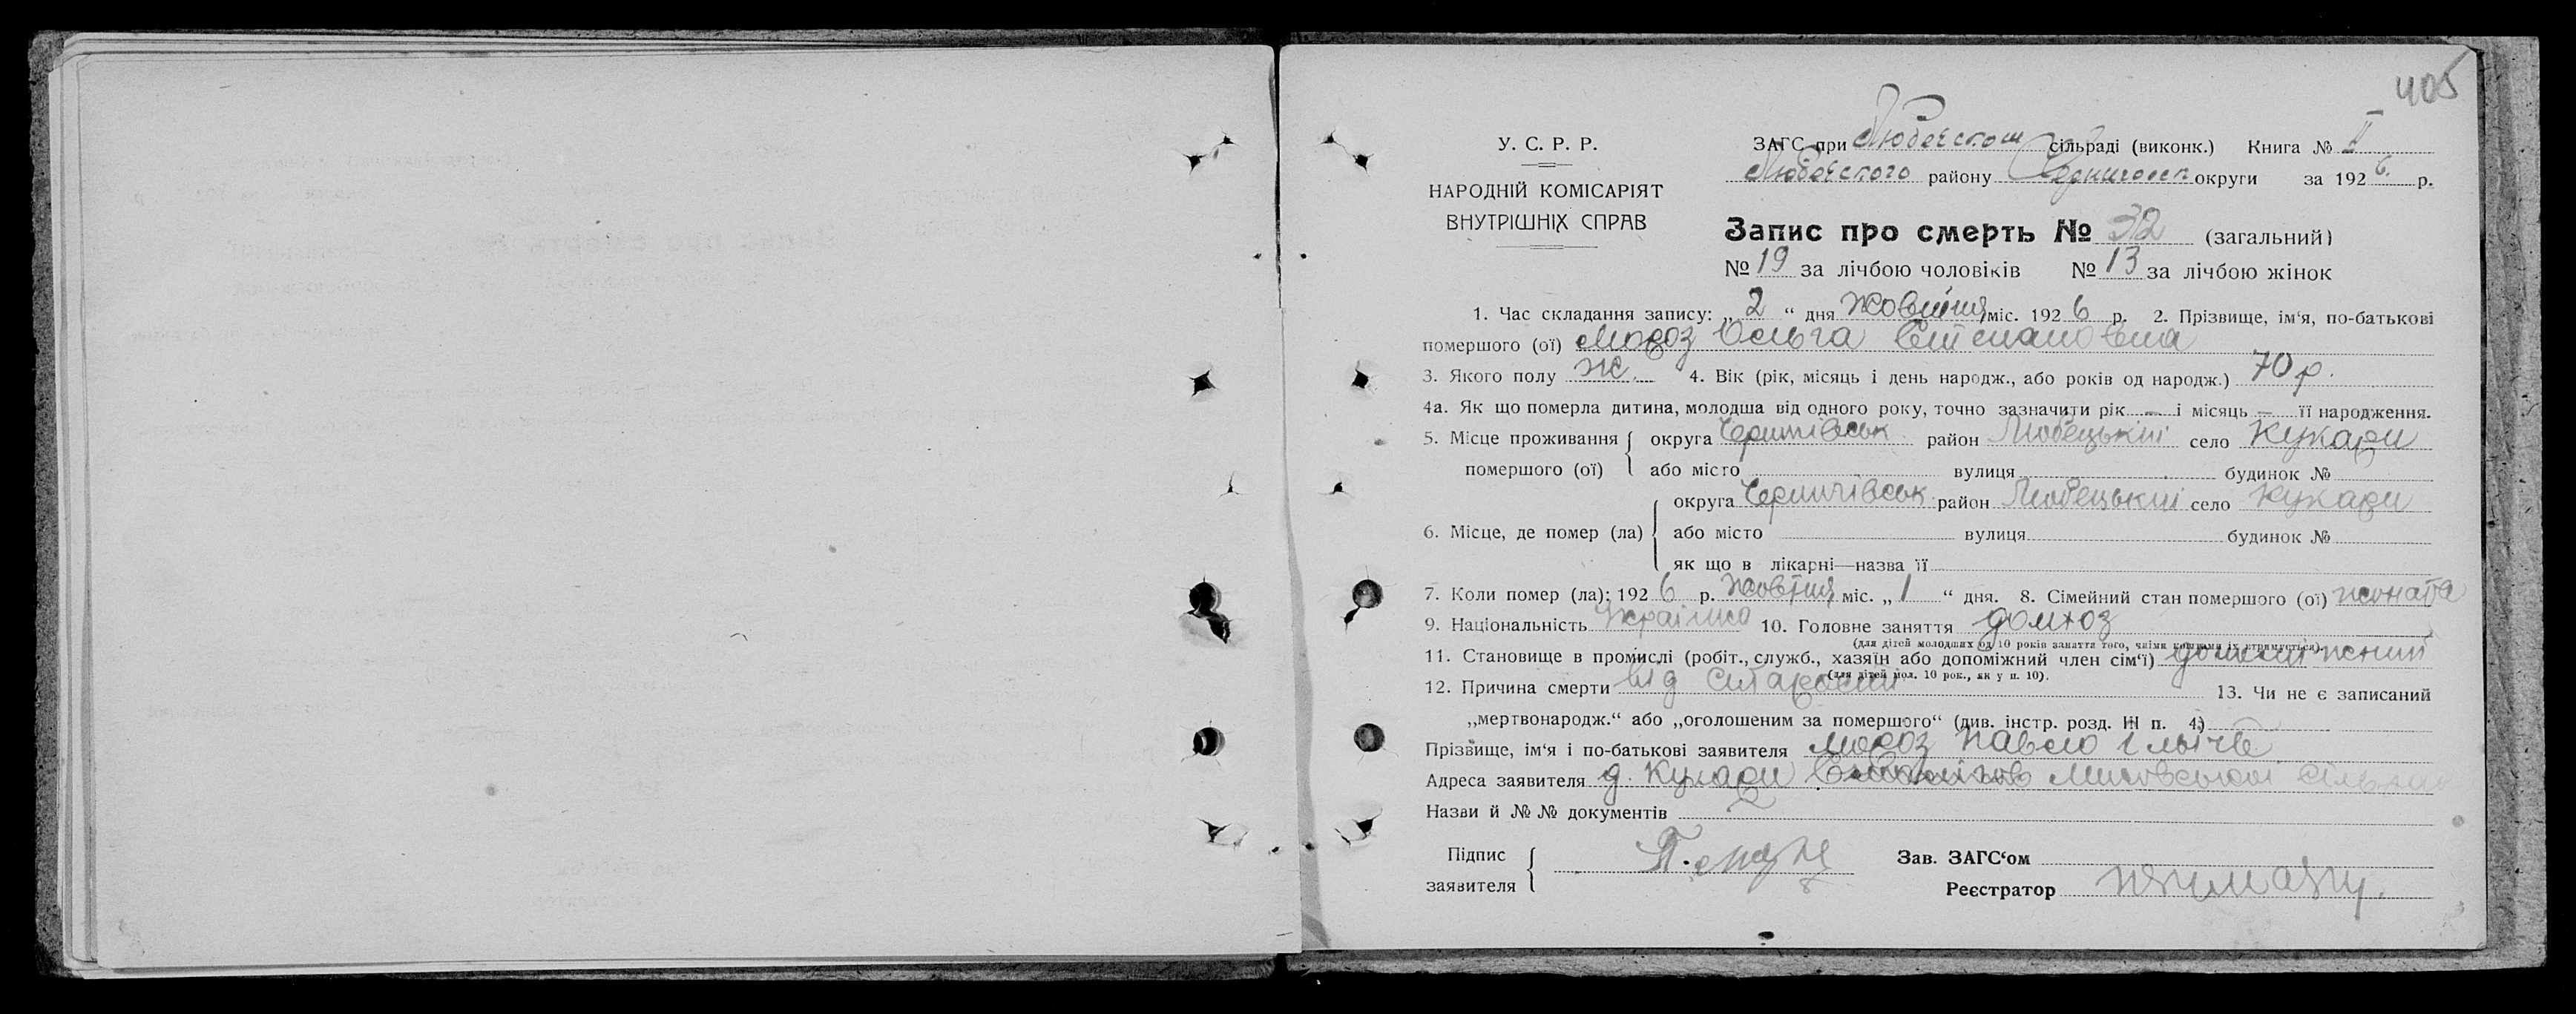 405
У. С. Р. Р.
НАРОДНІЙ КОМІСАРІЯТ
ВНУТРІШНІХ СПРАВ
ЗАГС при Любечском сільраді (виконк.) Книга № II
Любечского району Черниговск округи за 1926 р.
Запис про смерть № 32 (загальний)
№ 19 за лічбою чоловіків № 13 за лічбою жінок
1. Час складання запису: „2“ дня Жовтня міс. 1926 р. 2. Прізвище, ім'я, по-батькові
помершого (ої) Мороз Ольга Степановна
3. Якого полу ж. 4. Вік (рік, місяць і день народж., або років од народж.) 70 р.
4а. Як що померла дитина, молодша від одного року, точно зазначити рік — і місяць — її народження.
5. Місце проживання помершого (ої) округа Чернігівськ район Любецький село Кукари
або місто вулиця будинок №
6. Місце, де помер (ла) округа Чернігівськ район Любецький село Кукари
або місто вулиця будинок №
як що в лікарні—назва її
7. Коли помер (ла): 1926 р. Жовтня міс. „1“ дня. 8. Сімейний стан помершого (ої) жоната
9. Національність Украінка 10. Головне заняття домхоз
(для дітей молодших од 10 років заняття того, чиїми коштами їх утримується).
11. Становище в промислі (робіт., служб., хазяїн або допоміжний член сім'ї)
(для дітей мол. 10 рок., як у п. 10).
12. Причина смерти від старости 13. Чи не є записаний
„мертвонародж.“ або „оголошеним за помершого“ (див. інстр. розд. III п. 4)
Прізвище, ім'я і по-батькові заявителя Мороз Павло Ільіч
Адреса заявителя д. Кукари
Назви й № № документів
Підпис заявителя П. Мороз
Зав. ЗАГС'ом
Реєстратор